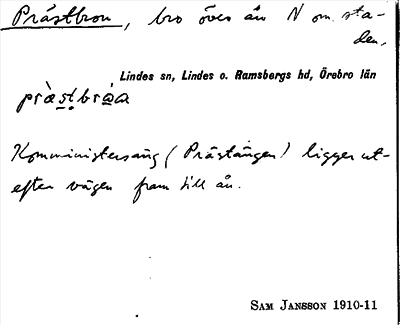 Prästbron, bro över ån N om sta-
den.
Lindes sn, Lindes o. Ramsbergs hd, Örebro län
Komministersäng (Prästängen) ligger ut-
efter vägen fram till ån.
SAM JANSSON 1910-11